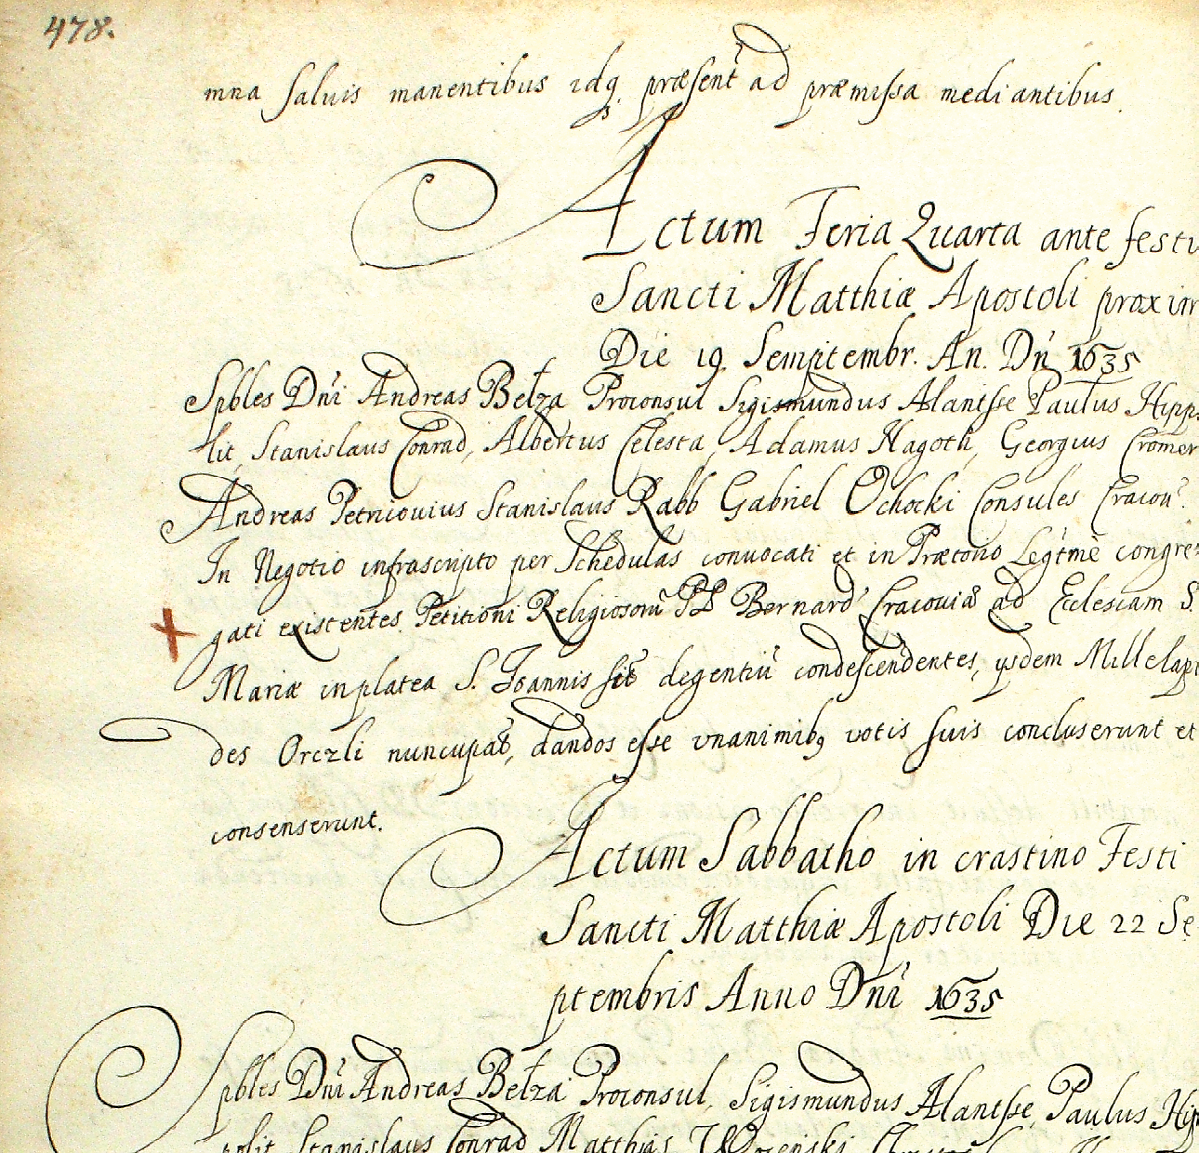 478.
mna saluis manentibus idq. præsent ad præmissa mediantibus.
Actum Feria Quarta ante festu
Sancti Matthiæ Apostoli proxim
Die 19. Semptembr. An. Dni 1635
Spbles Dni Andreas Belza Proconsul Sigismundus Alantsse Paulus Hipp
lit, Stanislaus Conrad, Albertus Celesta, Adamus Nagoth, Georgius Cromer
Andreas Petricouius Stanislaus Rabb Gabriel Ochocki Consules Cracou.
In Negotio infrascripto per Schedulas conuocati et in Prætorio Legtme congre
gati existentes Petitioni Religiosoru PP Bernard Cracouiæ ad Ecclesiam S.
Mariæ in platea S. Joannis sit degentiu condescendentes, ysdem Mille lapi
des Orczli nuncupat, dandos esse vnanimibq votis suis concluserunt et
consenserunt.
Actum Sabbatho in crastino Festi
Sancti Matthiæ Apostoli Die 22 Se
ptembris Anno Dni 1635
Spbles Dni Andreas Belza Proconsul, Sigismundus Alantsse, Paulus Hip
polit Stanislaus Conrad Matthias